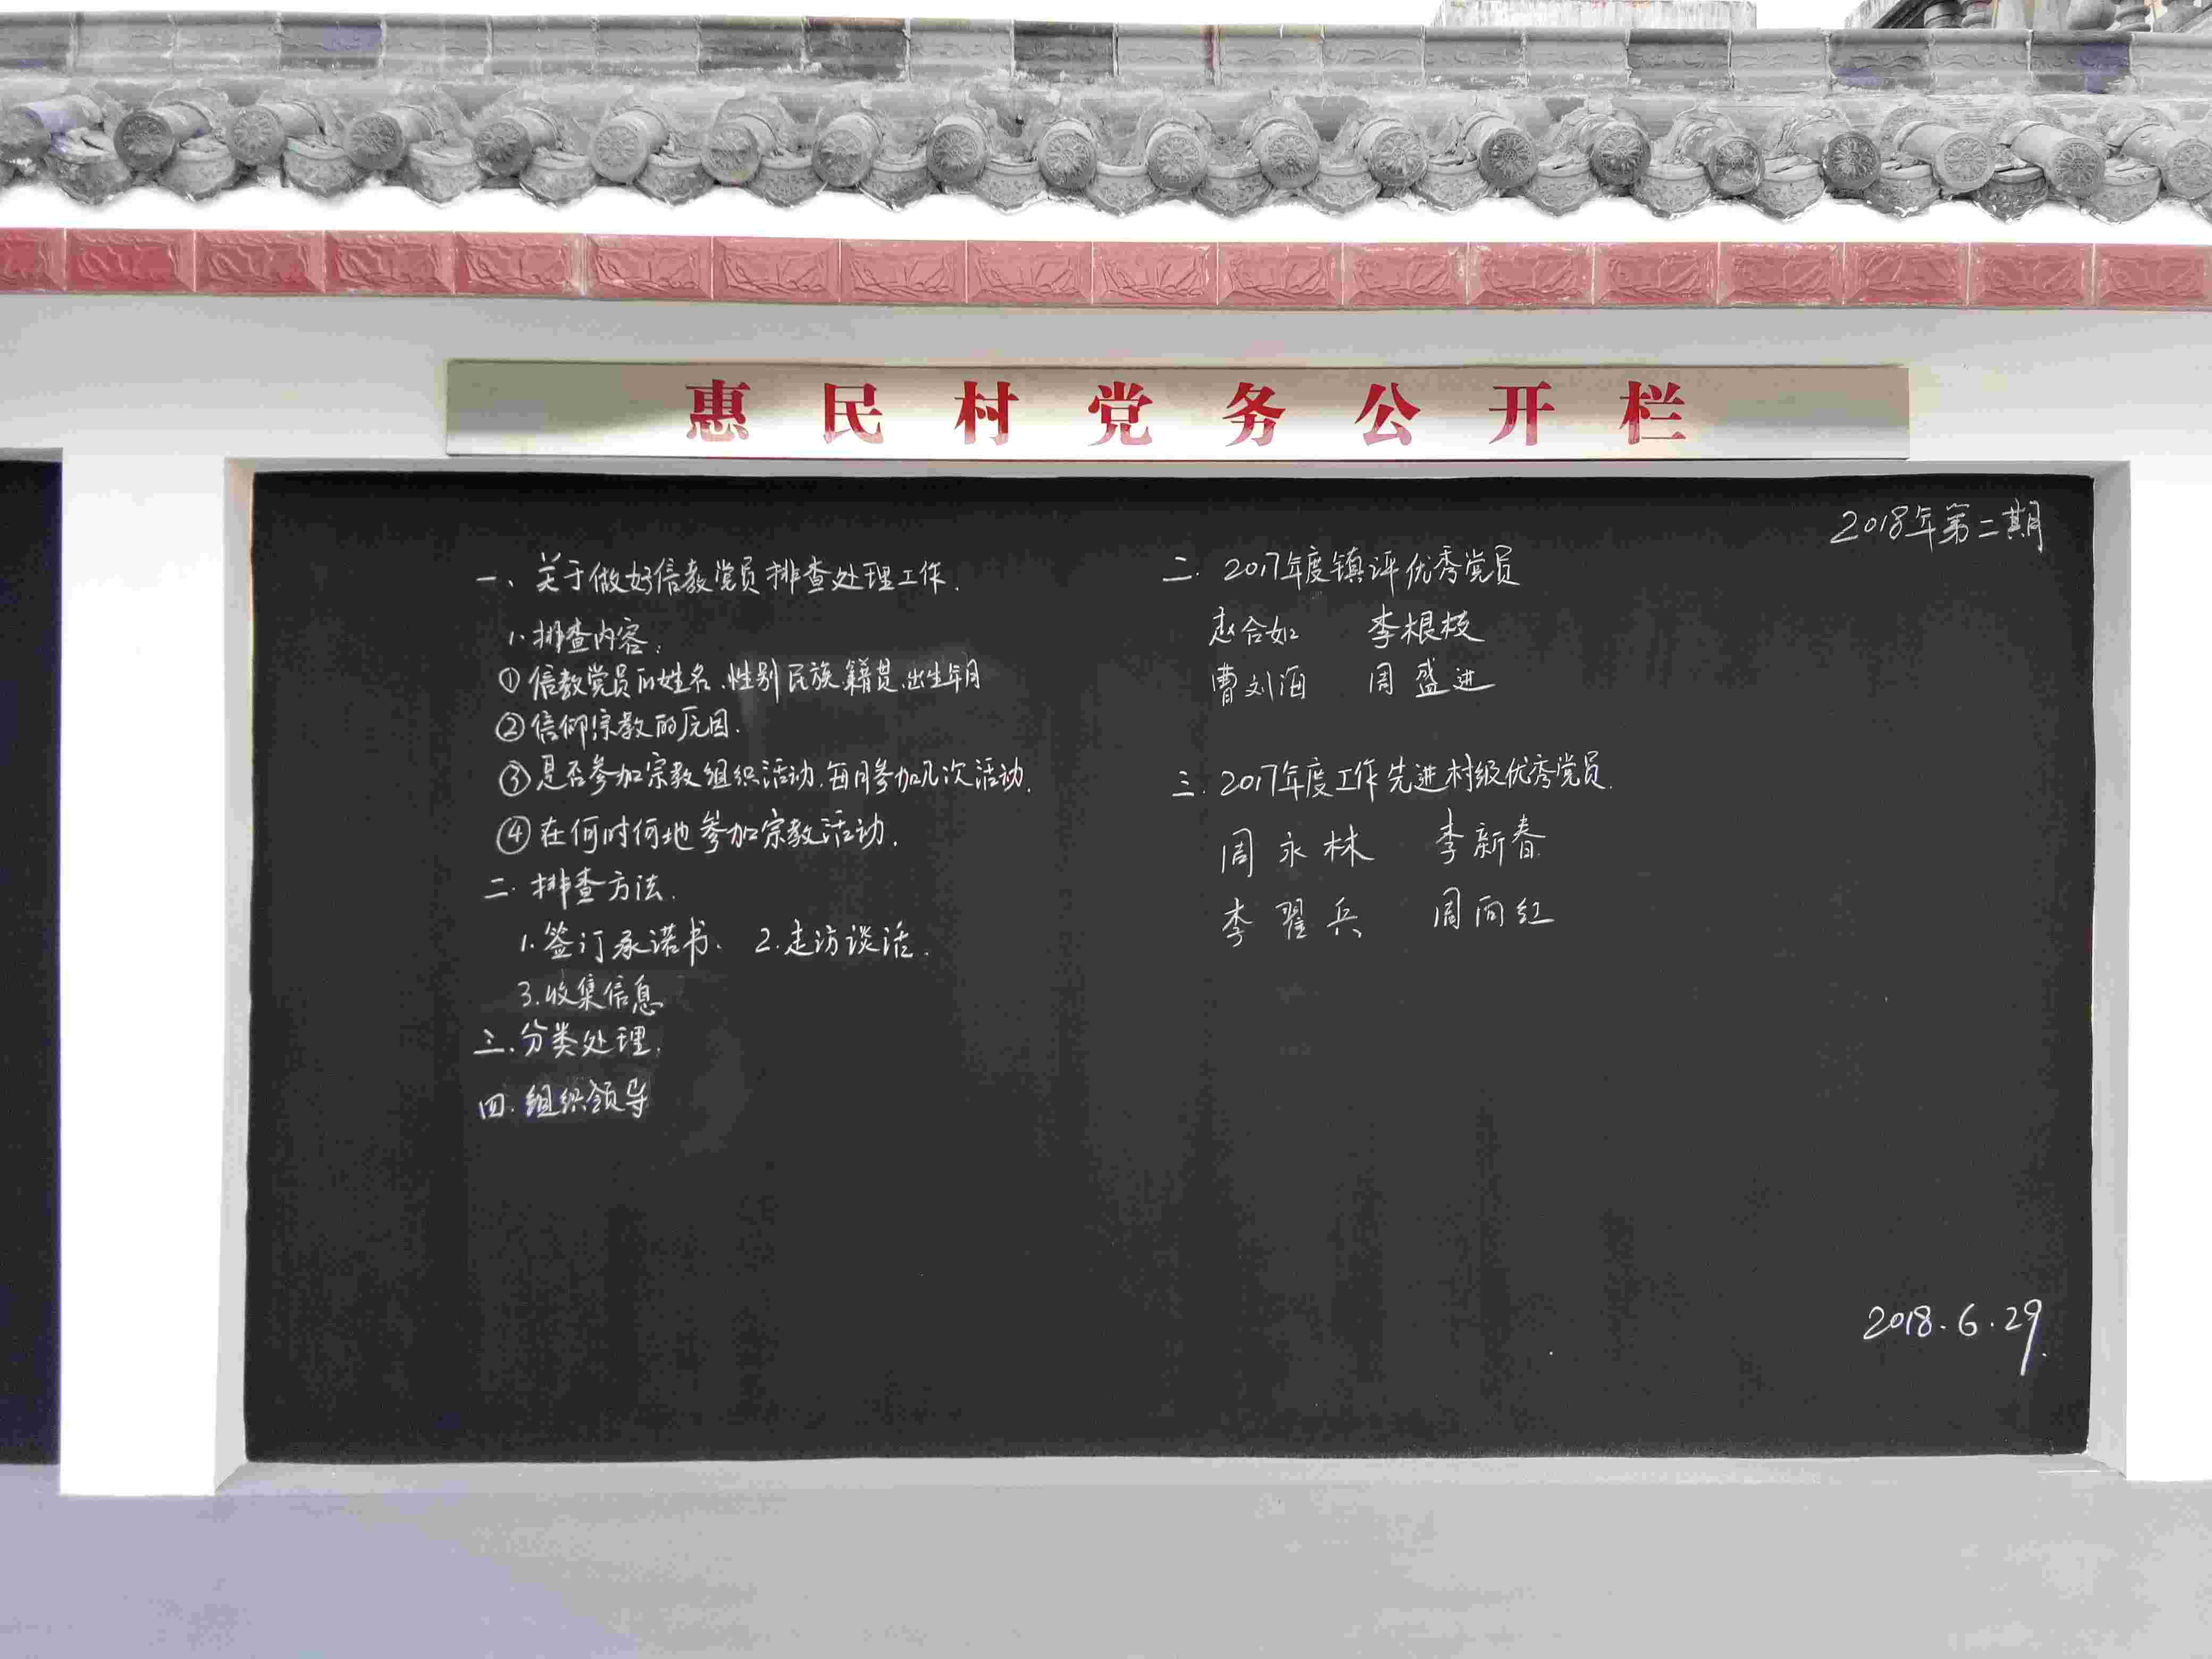 惠民村党务公开栏
2018年第二期
一、关于做好信教党员排查处理工作.
1.排查内容.
①信教党员的姓名、性别民族、籍贯、出生年月
②信仰宗教的原因.
③是否参加宗教组织活动.每月参加几次活动.
④在何时何地参加宗教活动.
二.排查方法.
1.签订承诺书、 2.走访谈话.
3.收集信息
三.分类处理.
四.组织领导
二. 2017年度镇评优秀党员
赵合如 李根枝
曹刘海 周盛进
三. 2017年度工作先进村级优秀党员.
周永林 李新春
李翟兵 周向红
2018.6.29.